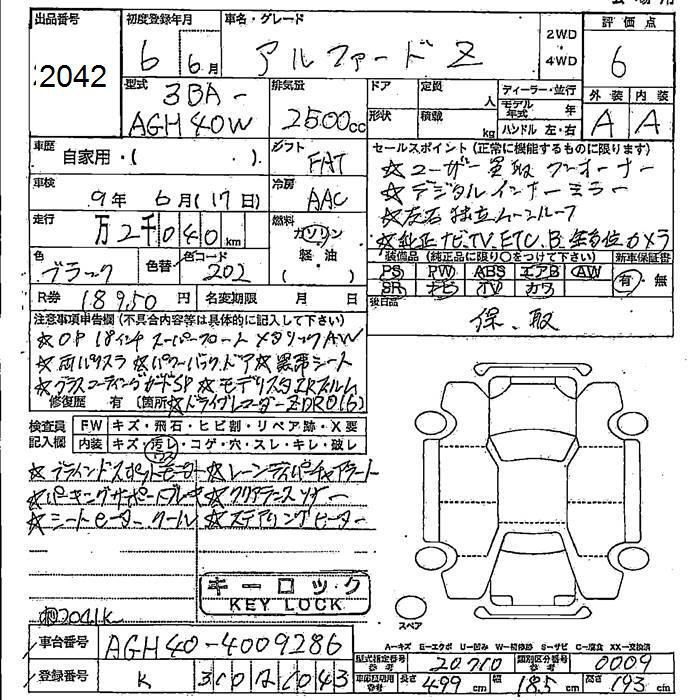 出品番号
2042
初度登録年月
6 6月
車名・グレード
アルファード Z
2WD
・
4WD
評価点
6
外装 内装
A A
型式
3BA-
AGH40W
排気量
2500cc
ドア
定員 人
形状
積載 kg
ディーラー・並行
モデル年式 年
ハンドル 左・右
車歴
自家用・( )
シフト
FAT
セールスポイント(正常に機能するものに限ります)
☆ユーザー買取 ワンオーナー
☆デジタルインナーミラー
☆左右独立ムーンルーフ
☆純正ナビ.TV.ETC.B.全方位カメラ
車検
9年 6月(17日)
冷房
AAC
走行
万2千040km
燃料
ガソリン
軽・油
色
ブラック
色替
色コード
202
装備品(純正品に限り○をつけて下さい)
PS PW ABS エアB AW
SR ナビ TV カワ
新車保証書
有・無
R券 18950円
名変期限 月 日
後日品
保、取
注意事項申告欄(不具合内容等は具体的に記入して下さい)
☆OP 18インチ スーパークロームメタリックAW
☆両パワスラ ☆パワーバックドア ☆黒革シート
☆グラスコーティングガードSP ☆モデリスタ
修復歴 有 (箇所 ☆ドライブレコーダー ZDR016)
検査員記入欄
FW キズ・飛石・ヒビ割・リペア跡・X要
内装 キズ・汚レ・コゲ・穴・スレ・キレ・破レ
☆ブラインドスポットモニター ☆レーンディパーチャアラート
☆パーキングサポートブレーキ ☆クリアランスソナー
☆シートヒーター クール ☆ステアリングヒーター
キーロック
KEY LOCK
スペア
A-キズ E-エクボ U-凹み W-補修跡 S-サビ C-腐食 XX-交換済
車台番号 AGH40-4009286
登録番号
型式指定番号 参考 20710
類別区分番号 参考 0009
車両区別用 参考 長さ 499cm 幅 185cm 高さ 193cm